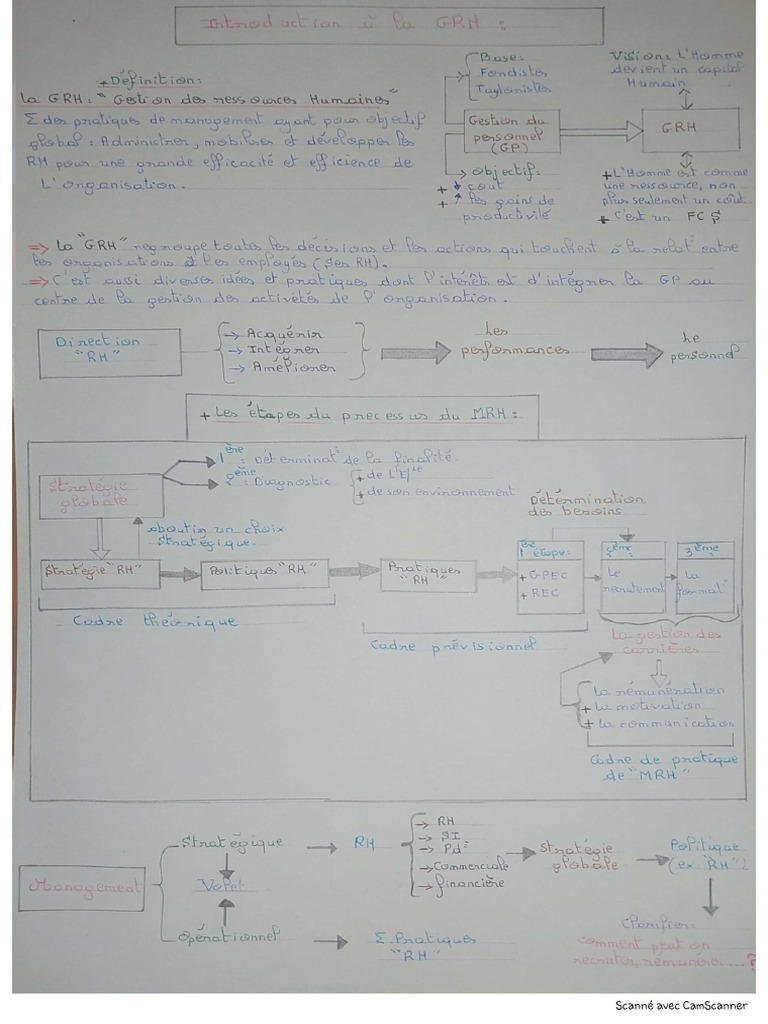 Introduction à la GRH :
+ Définition:
La GRH: "Gestion des ressources Humaines"
Σ des pratiques de management ayant pour objectif
global : Administrer, mobiliser et développer les
RH pour une grande efficacité et efficience de
L'organisation.
Base:
Fondistes
Taylonistes
Gestion du
personnel
(GP)
Objectif:
+ ↓ cout
+ ↑ les gains de
productivité
Vision: L'Homme
devient un capital
Humain
GRH
+ L'Homme est comme
une ressource, non
plus seulement un coût.
+ C'est un FC
⇒ La "GRH" regroupe toutes les décisions et les actions qui touchent à la relat° entre
les organisations & les employés (Ses RH).
⇒ C'est aussi diverses idées et pratiques dont l'intérêt est d'intégrer la GP au
centre de la gestion des activetés de l'organisation.
Direction
"RH"
→ Acquérir
→ Intégrer
→ Améliorer
Les
performances
Le
personnel
+ Les étapes du precessus du MRH:
Stratégie
globale
1ère : Déterminat° de la finalité.
2ème : Diagnostic
+ de L'E/se
+ de son environnement
aboutir un choix
stratégique.
Détermination
des besoins
Stratégie "RH"
Politiques "RH"
Pratiques
"RH"
étape:
+ GPEC
+ REC
2ème
Le
recrutement
3ème
La
format°
Cadre théorique
Cadre prévisionnel
La gestion des
carrières
La rémunération
+ La motivation
+ La communication
Cadre de pratique
de "MRH"
Management
Stratégique
Volet
Opérationnel
RH
→ RH
→ SI
→ Pd°
→ Commerciale
→ financière
Stratégie
globale
Politique
(ex: "RH")
Σ Pratiques
"RH"
Clarifier:
comment peut on
recruter, rémunérer ...?
Scanné avec CamScanner